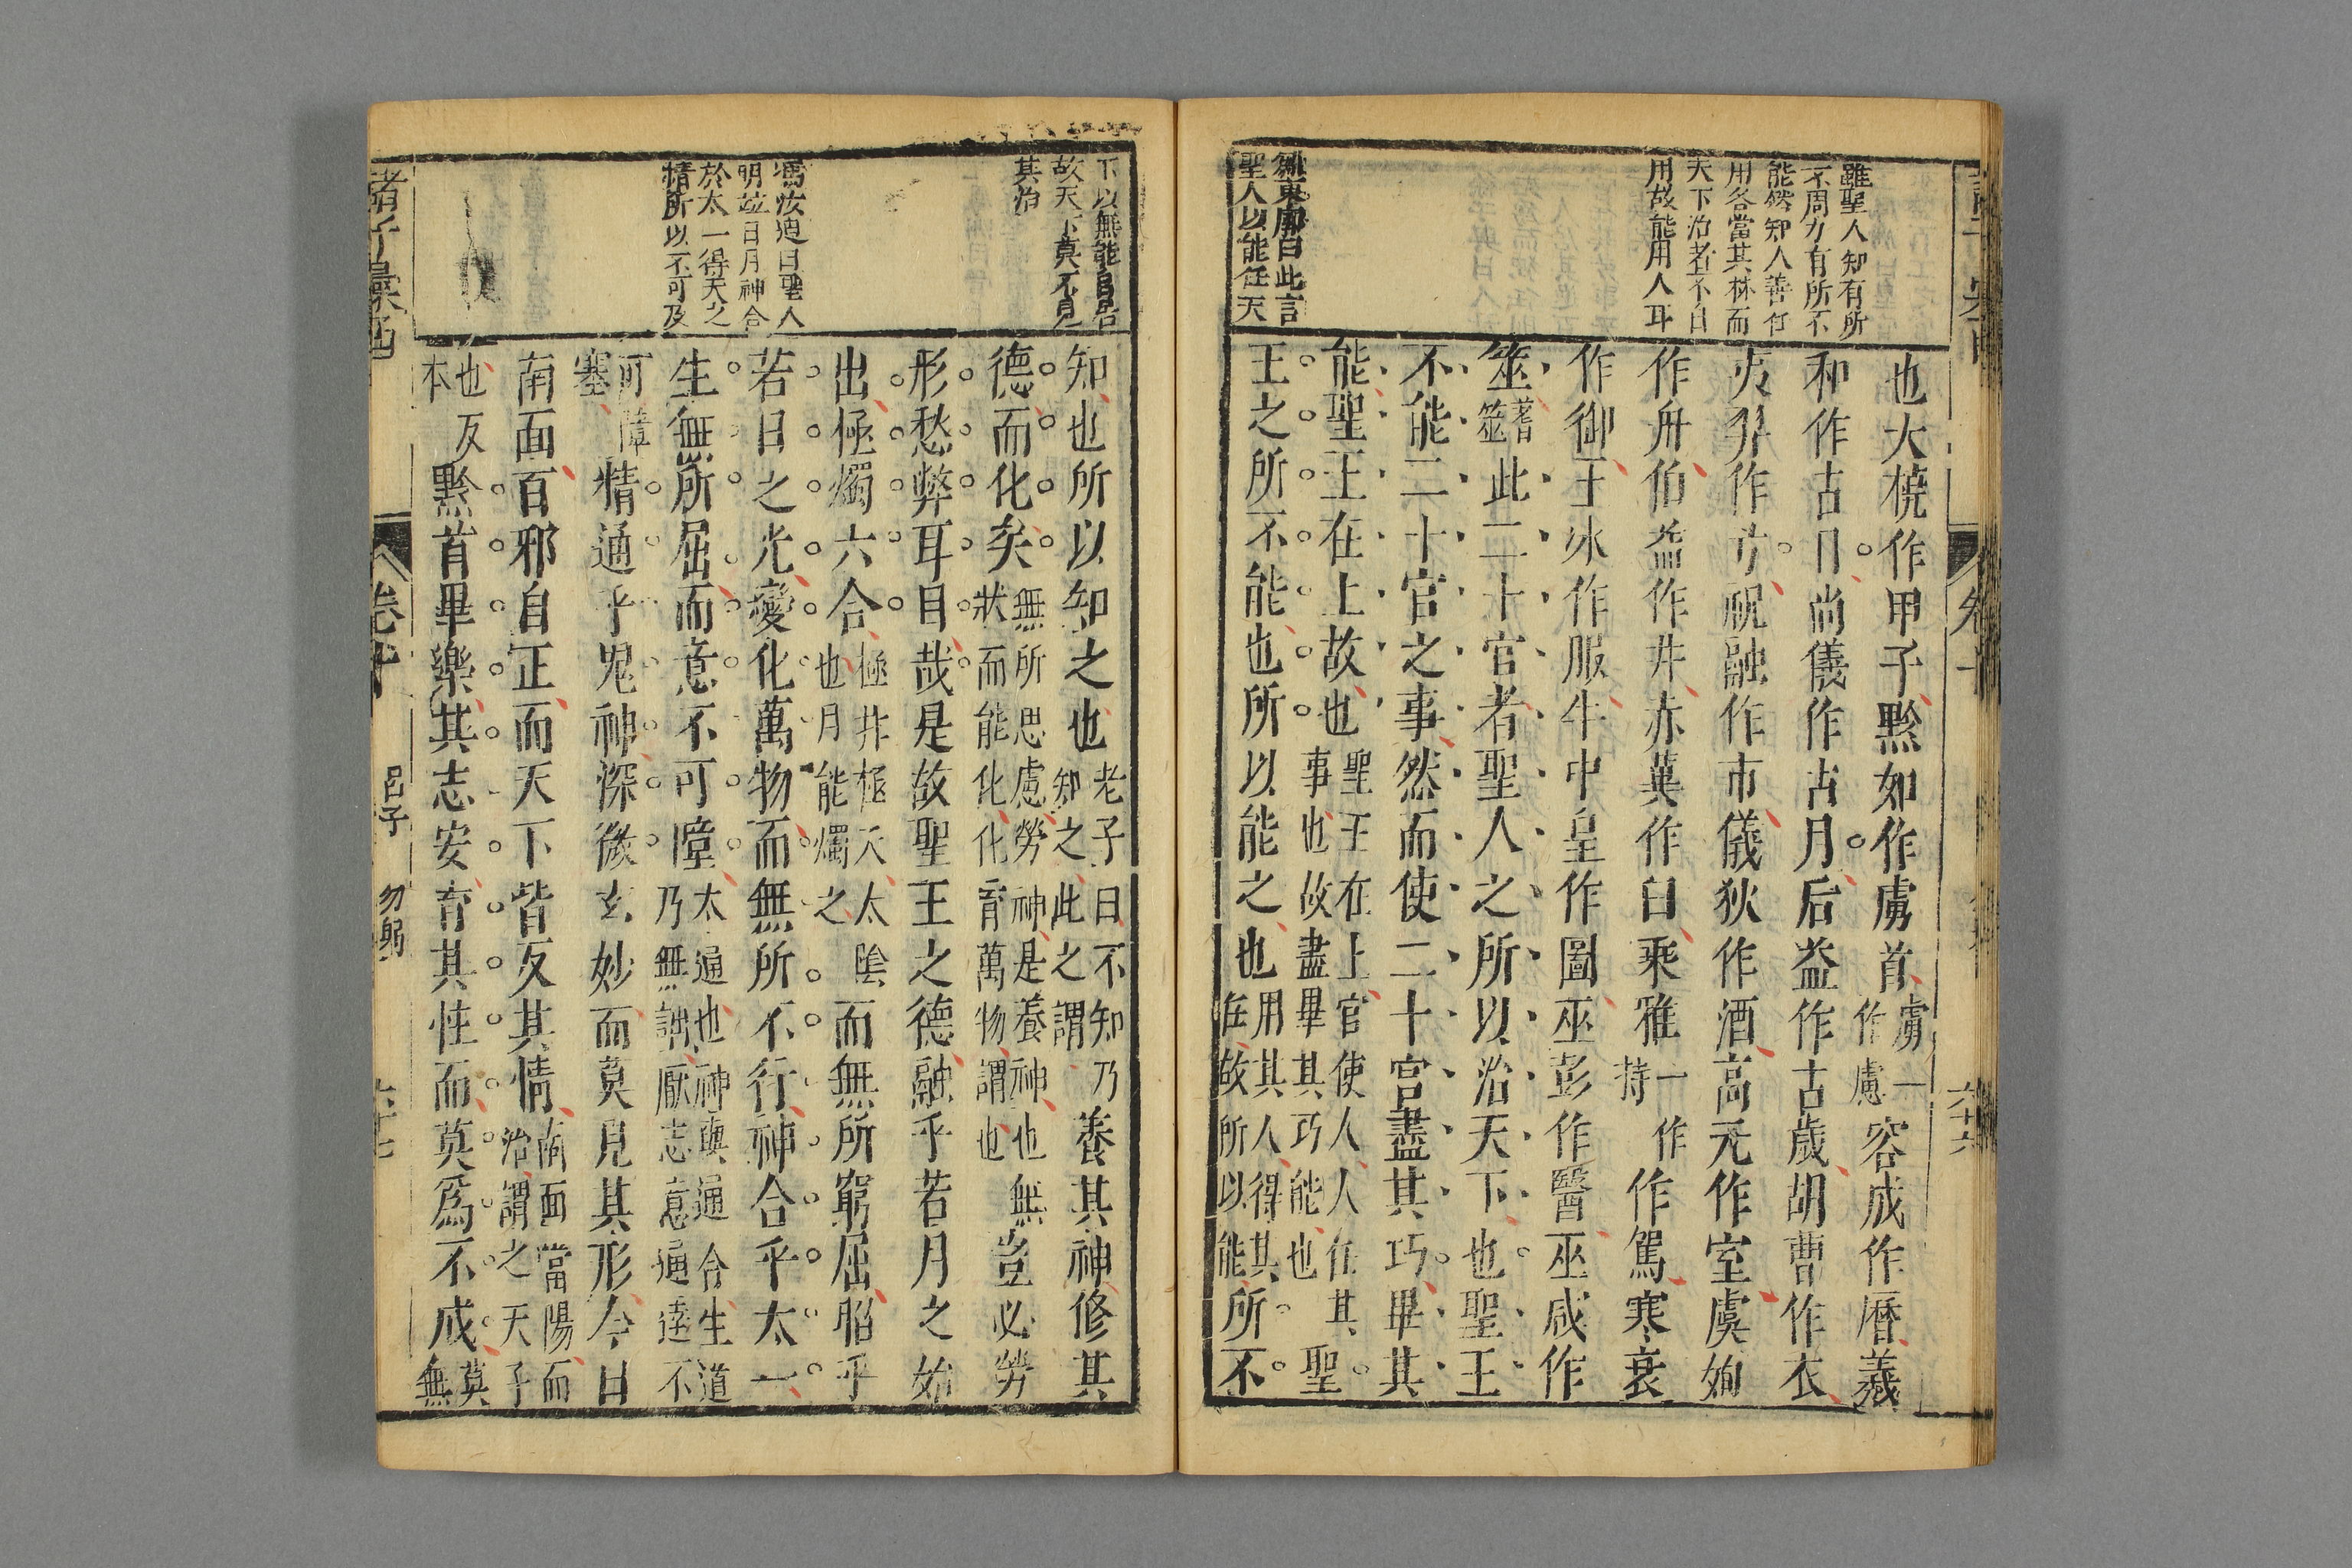 雖聖人知有所
不周力有所不
能然知人善任
用各當其林而
天下治者不自
用故能用人耳
聖人以能任天
也大橈作甲子黔如作虜首虜一作慮容成作曆羲
和作占日尚儀作占月后益作古歲胡曹作衣
夷羿作弓祝融作市儀狄作酒高元作室虞姁
作舟伯益作井赤冀作臼乘雅一作持作駕寒衰
作御王氷作服牛史皇作圖巫彭作醫巫咸作
筮蓍筮此二十官者聖人之所以治天下也聖王
不能二十官之事然而使二十官盡其巧畢其
能聖王在上故也聖王在上官使人人任其事也故盡畢其巧能也聖
王之所不能也所以能之也用其人得其任故所以能所不
下以無能自居
故天下莫不見
其治
明竝日月神合
於太一得天之
精所以不可及
知也所以知之也老子曰不知乃知之此之謂養其神修其
德而化矣無所思慮勞神是養神也無狀而能化化育萬物謂也豈必勞
形愁弊耳目哉是故聖王之德融乎若月之始
出極燭六合極井極天太陰也月能燭之而無所窮屈昭乎
若日之光變化萬物而無所不行神合乎太一
生無所屈而意不可障太通也神與通合生道乃無詘厭志意通達不
可障塞精通乎鬼神深微玄妙而莫見其形今日
南面百邪自正而天下皆反其情南面當陽而治謂之天子
也反本黔首畢樂其志安育其性而莫爲不成莫無
諸子彙函
卷十
呂子
勿躬
六十七
六十六